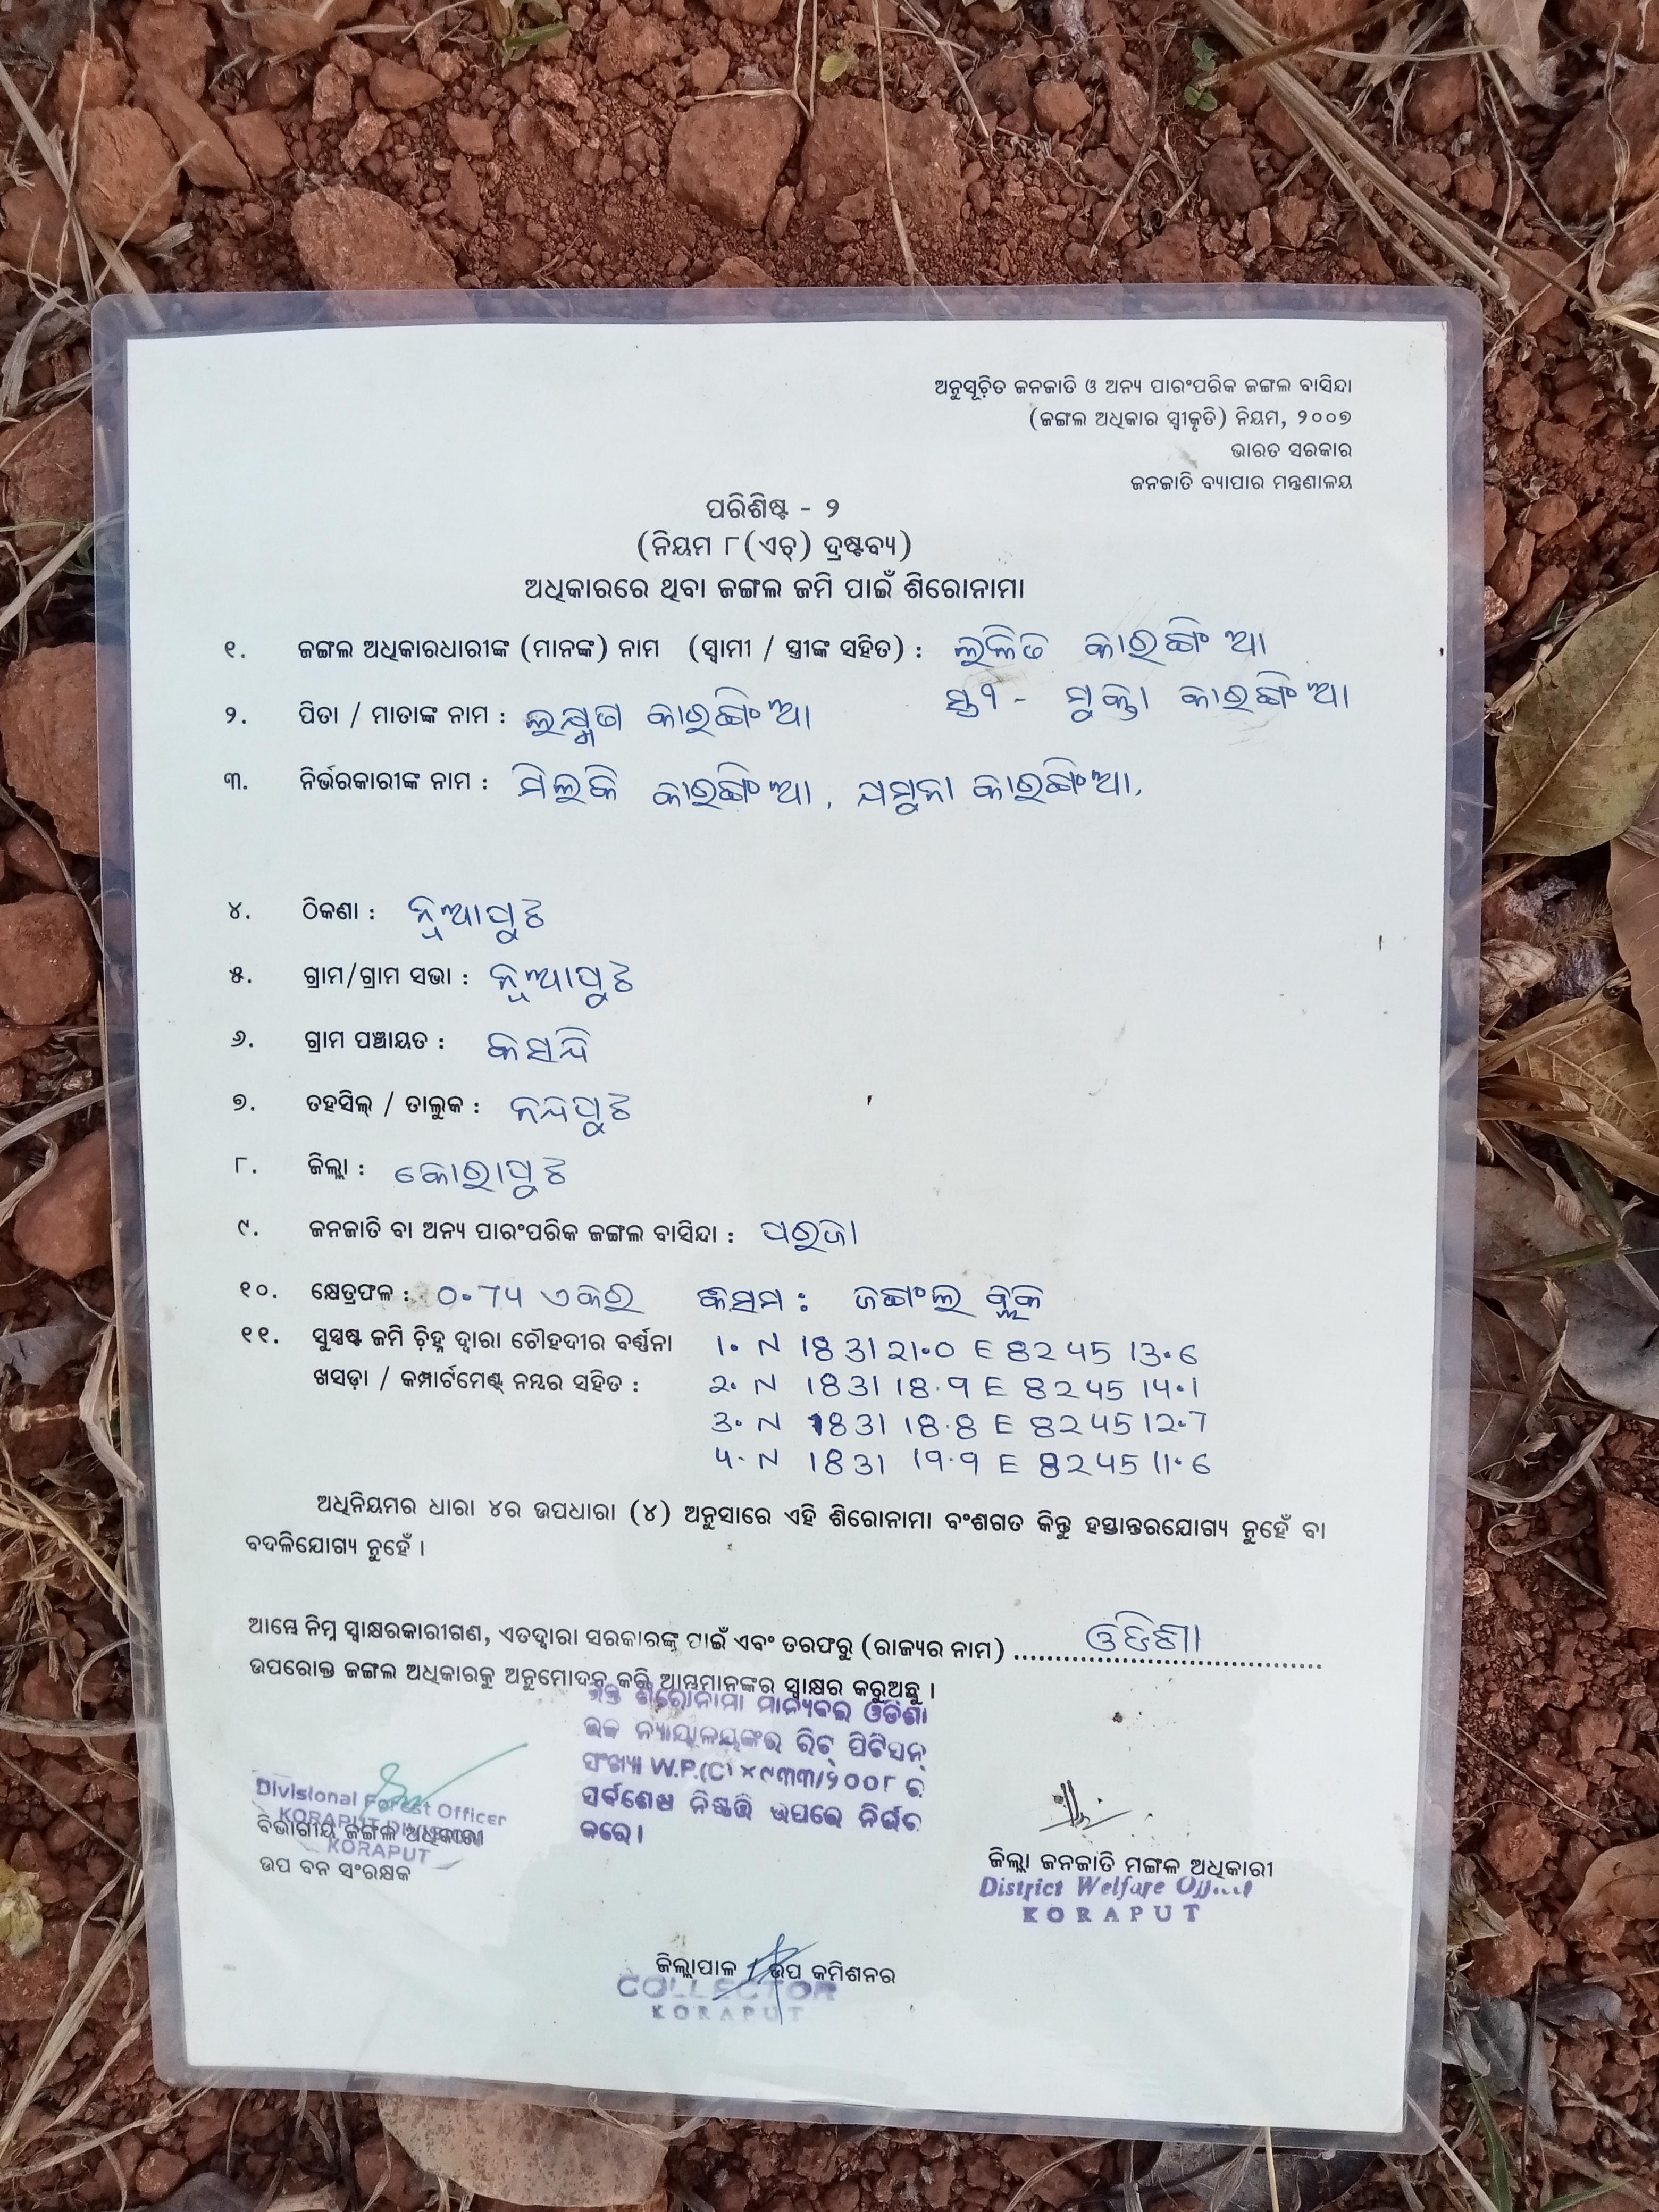 ଅନୁସୂଚିତ ଜନଜାତି ଓ ଅନ୍ୟ ପାରଂପରିକ ଜଙ୍ଗଲ ବାସିନ୍ଦା
(ଜଙ୍ଗଲ ଅଧିକାର ସ୍ୱୀକୃତି) ନିୟମ, ୨୦୦୭
ଭାରତ ସରକାର
ଜନଜାତି ବ୍ୟାପାର ମନ୍ତ୍ରଣାଳୟ
ପରିଶିଷ୍ଟ - ୨
(ନିୟମ ୮(ଏଚ୍) ଦ୍ରଷ୍ଟବ୍ୟ)
ଅଧିକାରରେ ଥିବା ଜଙ୍ଗଲ ଜମି ପାଇଁ ଶିରୋନାମା
୧. ଜଙ୍ଗଲ ଅଧିକାରଧାରୀଙ୍କ (ମାନଙ୍କ) ନାମ (ସ୍ୱାମୀ / ସ୍ତ୍ରୀଙ୍କ ସହିତ) : କାରଙ୍ଗିଂଆ
ସ୍ତ୍ରୀ - ମୁକ୍ତା କାରଙ୍ଗିଂଆ
୨. ପିତା / ମାତାଙ୍କ ନାମ : କାରଙ୍ଗିଂଆ
୩. ନିର୍ଭରକାରୀଙ୍କ ନାମ : ମିଲୁକି କାରଙ୍ଗିଂଆ, ଯମୁନା କାରଙ୍ଗିଂଆ,
୪. ଠିକଣା : ନୂଆପୁଟ
୫. ଗ୍ରାମ/ଗ୍ରାମ ସଭା : ନୂଆପୁଟ
୬. ଗ୍ରାମ ପଞ୍ଚାୟତ : କସନ୍ଦି
୭. ତହସିଲ୍ / ତାଲୁକ : ନନ୍ଦପୁଟ
୮. ଜିଲ୍ଲା : କୋରାପୁଟ
୯. ଜନଜାତି ବା ଅନ୍ୟ ପାରଂପରିକ ଜଙ୍ଗଲ ବାସିନ୍ଦା : ପରଜା
୧୦. କ୍ଷେତ୍ରଫଳ : 0.74 ଏକର କିସମ : ଜଙ୍ଗଲ
୧୧. ସୁସ୍ପଷ୍ଟ ଜମି ଚିହ୍ନ ଦ୍ୱାରା ଚୌହଦୀର ବର୍ଣ୍ଣନା 1. N 18 31 21.0 E 82 45 13.6
ଖସଡ଼ା / କମ୍ପାର୍ଟମେଣ୍ଟ୍ ନମ୍ବର ସହିତ : 2. N 18 31 18.9 E 82 45 14.1
3. N 18 31 18.8 E 82 45 12.7
4. N 18 31 19.9 E 82 45 11.6
ଅଧିନିୟମର ଧାରା ୪ର ଉପଧାରା (୪) ଅନୁସାରେ ଏହି ଶିରୋନାମା ବଂଶଗତ କିନ୍ତୁ ହସ୍ତାନ୍ତରଯୋଗ୍ୟ ନୁହେଁ ବା
ବଦଳିଯୋଗ୍ୟ ନୁହେଁ ।
ଆମ୍ଭେ ନିମ୍ନ ସ୍ୱାକ୍ଷରକାରୀଗଣ, ଏତଦ୍ୱାରା ସରକାରଙ୍କ ପାଇଁ ଏବଂ ତରଫରୁ (ରାଜ୍ୟର ନାମ) ଓଡିଶା
ଉପରୋକ୍ତ ଜଙ୍ଗଲ ଅଧିକାରକୁ ଅନୁମୋଦନ କରି ଆମ୍ଭମାନଙ୍କର ସ୍ୱାକ୍ଷର କରୁଅଛୁ ।
ଉକ୍ତ ଶିରୋନାମା ମାନ୍ୟବର ଓଡିଶା
ଉଚ୍ଚ ନ୍ୟାୟାଳୟଙ୍କର ରିଟ୍ ପିଟିସନ୍
ସଂଖ୍ୟା W.P.(C) ୪୯୩୩/୨୦୦୮ ର
ସର୍ବଶେଷ ନିଷ୍ପତ୍ତି ଉପରେ ନିର୍ଭର
କରେ ।
Divisional Forest Officer
KORAPUT DIVISION
ବିଭାଗୀୟ ଜଙ୍ଗଲ ଅଧିକାରୀ
KORAPUT
ଉପ ବନ ସଂରକ୍ଷକ
ଜିଲ୍ଲା ଜନଜାତି ମଙ୍ଗଳ ଅଧିକାରୀ
District Welfare Officer
KORAPUT
ଜିଲ୍ଲାପାଳ / ଉପ କମିଶନର
COLLECTOR
KORAPUT